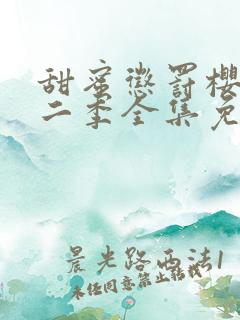 甜蜜惩罚樱
二季全集免
晨光路西法1
未经同意禁止转载